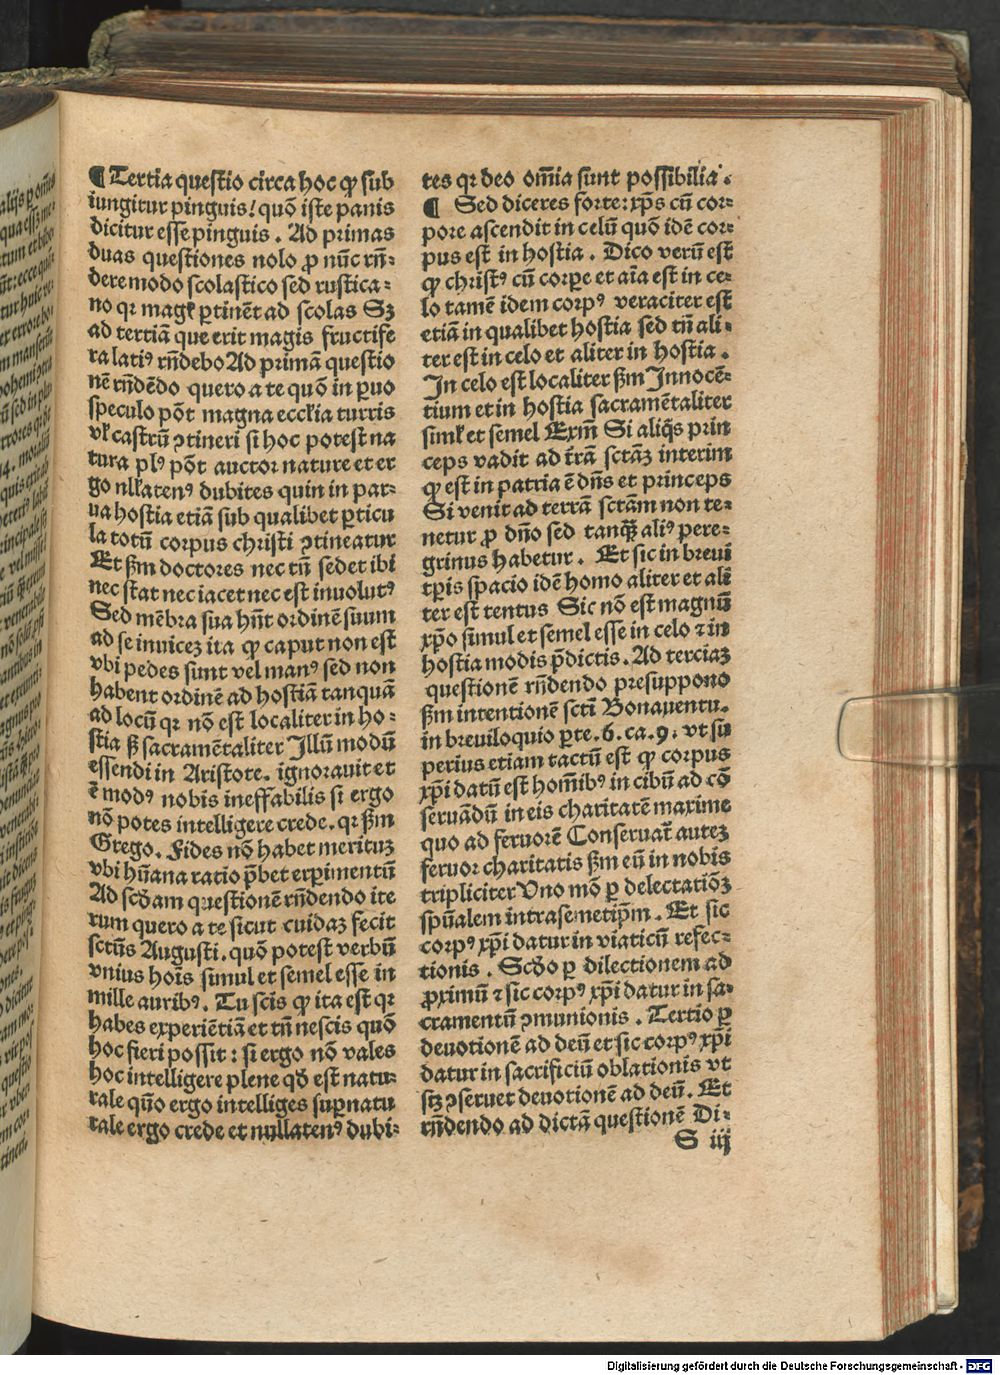 ¶ Tertia questio circa hoc ꝙ sub
iungitur pinguis! quō iste panis
dicitur esse pinguis. Ad primas
duas questiones nolo ꝓ nūc rn̄⸗
dere modo scolastico sed rustica⸗
no qꝛ magꝭ ꝑtinēt ad scolas Sꝫ
ad tertiā que erit magis fructife
ra latiꝰ rn̄debo Ad primā questio
nē rn̄dēdo quero a te quō in ꝑuo
speculo pōt magna ecclꝭia turris
vꝉ castrū ↄtineri si hoc potest na
tura plꝰ pōt auctor nature et er
go nllatenꝰ dubites quin in par⸗
ua hostia etiā sub qualibet ꝑticu
la totū corpus christi ↄtineatur
Et ßm doctores nec tn̄ sedet ibi
nec stat nec iacet nec est inuolutꝰ
Sed mēbra sua hn̄t ordinē suum
ad se inuicez ita ꝙ caput non est
vbi pedes sunt vel manꝰ sed non
habent ordinē ad hostiā tanquā
ad locū qꝛ nō est localiter in ho⸗
stia ß sacramētaliter Illū modū
essendi in Aristote. ignorauit et
ē modꝰ nobis ineffabilis si ergo
nō potes intelligere crede. qꝛ ßm
Grego. Fides nō habet merituꝫ
vbi hūana ratio p̄bet exꝑimentū
Ad scd̄am questionē rn̄dendo ite
rum quero a te sicut cuidaꝫ fecit
sctūs Augusti. quō potest verbū
vnius hoīs simul et semel esse in
mille auribꝰ. Tu scis ꝙ ita est qꝛ
habes experiētiā et tn̄ nescis quō
hoc fieri possit : si ergo nō vales
hoc intelligere plene qd̄ est natu⸗
rale quō ergo intelliges suꝑnatu
rale ergo crede et nullatenꝰ dubi⸗
tes qꝛ deo om̄ia sunt possibilia.
¶ Sed diceres forte: xp̄s cū cor⸗
pore ascendit in celū quō idē cor⸗
pus est in hostia. Dico verū est
ꝙ christꝰ cū corꝑe et aīa est in ce⸗
lo tamē idem corpꝰ veraciter est
etiā in qualibet hostia sed tn̄ ali⸗
ter est in celo et aliter in hostia.
In celo est localiter ßm Innocē⸗
tium et in hostia sacramētaliter
simꝉ et semel Exm̄ Si aliq̄s prin
ceps vadit ad t̄rā sctāꝫ interim
ꝙ est in patria ē dn̄s et princeps
Si venit ad terrā sctām non te⸗
netur ꝓ dn̄o sed tanꝗ̄ aliꝰ pere⸗
grinus habetur. Et sic in breui
tꝑis spacio idē homo aliter et ali
ter est tentus Sic nō est magnū
xp̄o simul et semel esse in celo ⁊ in
hostia modis p̄dictis. Ad terciaꝫ
questionē rn̄dendo presuppono
ßm intentionē sctī Bonauentu.
in breuiloquio ꝑte. 6. ca. 9. vt su
perius etiam tactū est ꝙ corpus
xp̄i datū est hom̄ibꝰ in cibū ad cō
seruādū in eis charitatē maxime
quo ad feruorē Conseruat̄ auteꝫ
feruor charitatis ßm eū in nobis
tripliciter Uno mō ꝑ delectatiōꝫ
sp̄ualem intrasemetip̄m. Et sic
corpꝰ xp̄i datur in viaticū refec⸗
tionis. Scd̄o ꝑ dilectionem ad
ꝓximū ⁊ sic corpꝰ xp̄i datur in sa⸗
cramentū ↄmunionis. Tertio ꝑ
deuotionē ad deū et sic corpꝰ xp̄i
datur in sacrificiū oblationis vt
sꝫ ↄseruet deuotionē ad deū. Et
rn̄dendo ad dictā questionē Di⸗
S iij
Digitalisierung gefördert durch die Deutsche Forschungsgemeinschaft - DFG